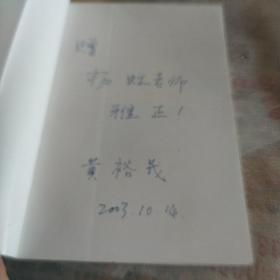 赠
杨虹老师
雅正！
黄裕义
2003.10.16.